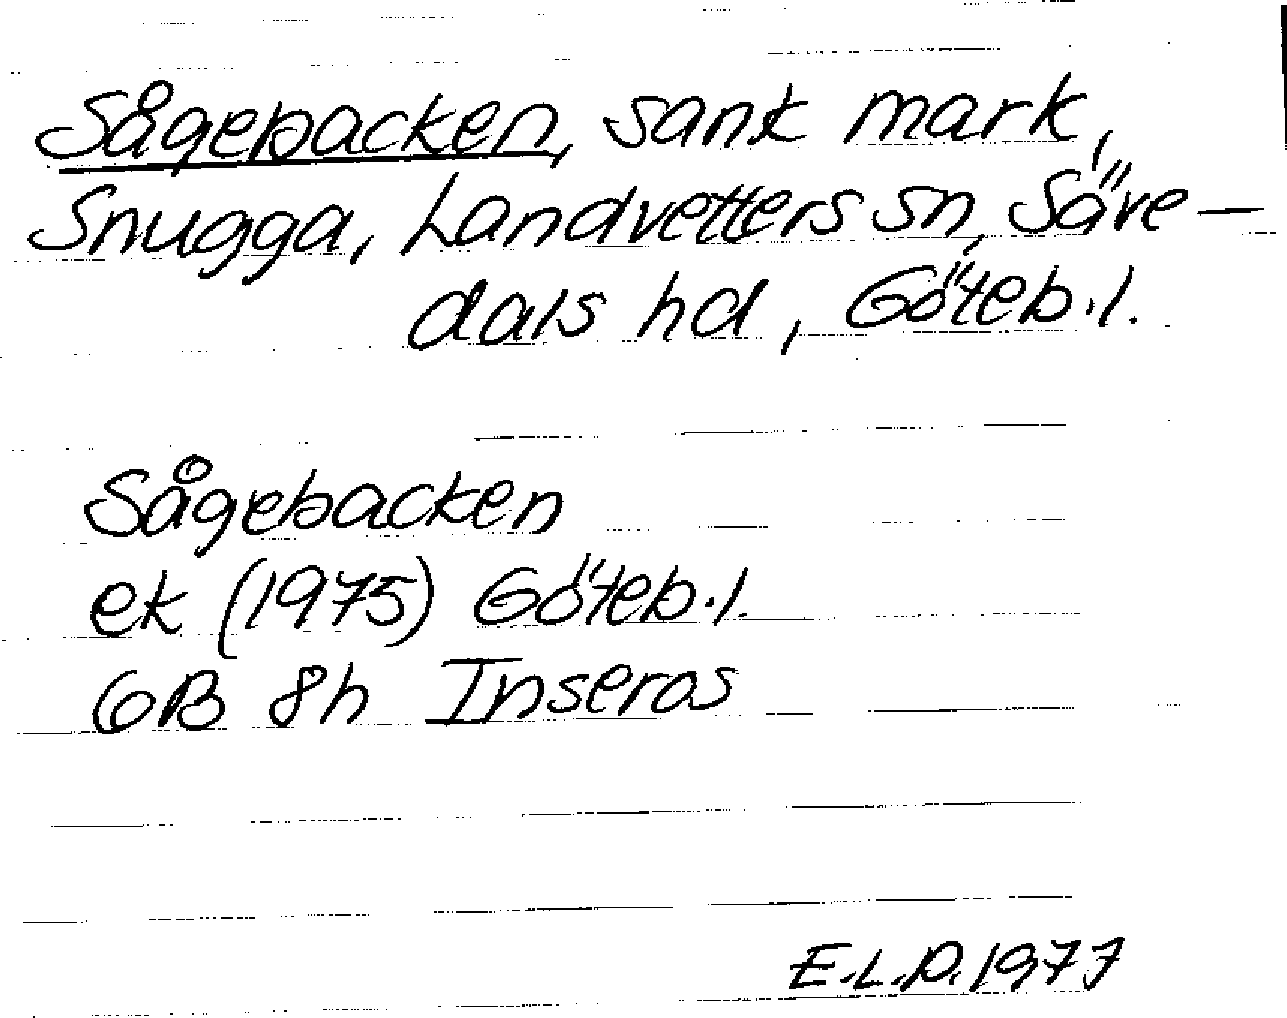 Sågebacken, sank mark,
Snugga, Landvetters sn, Säve-
dals hd, Göteb.l.
Sågebacken
ek (1975) Göteb.l.
6B 8h Inseros
E.L.P. 1977